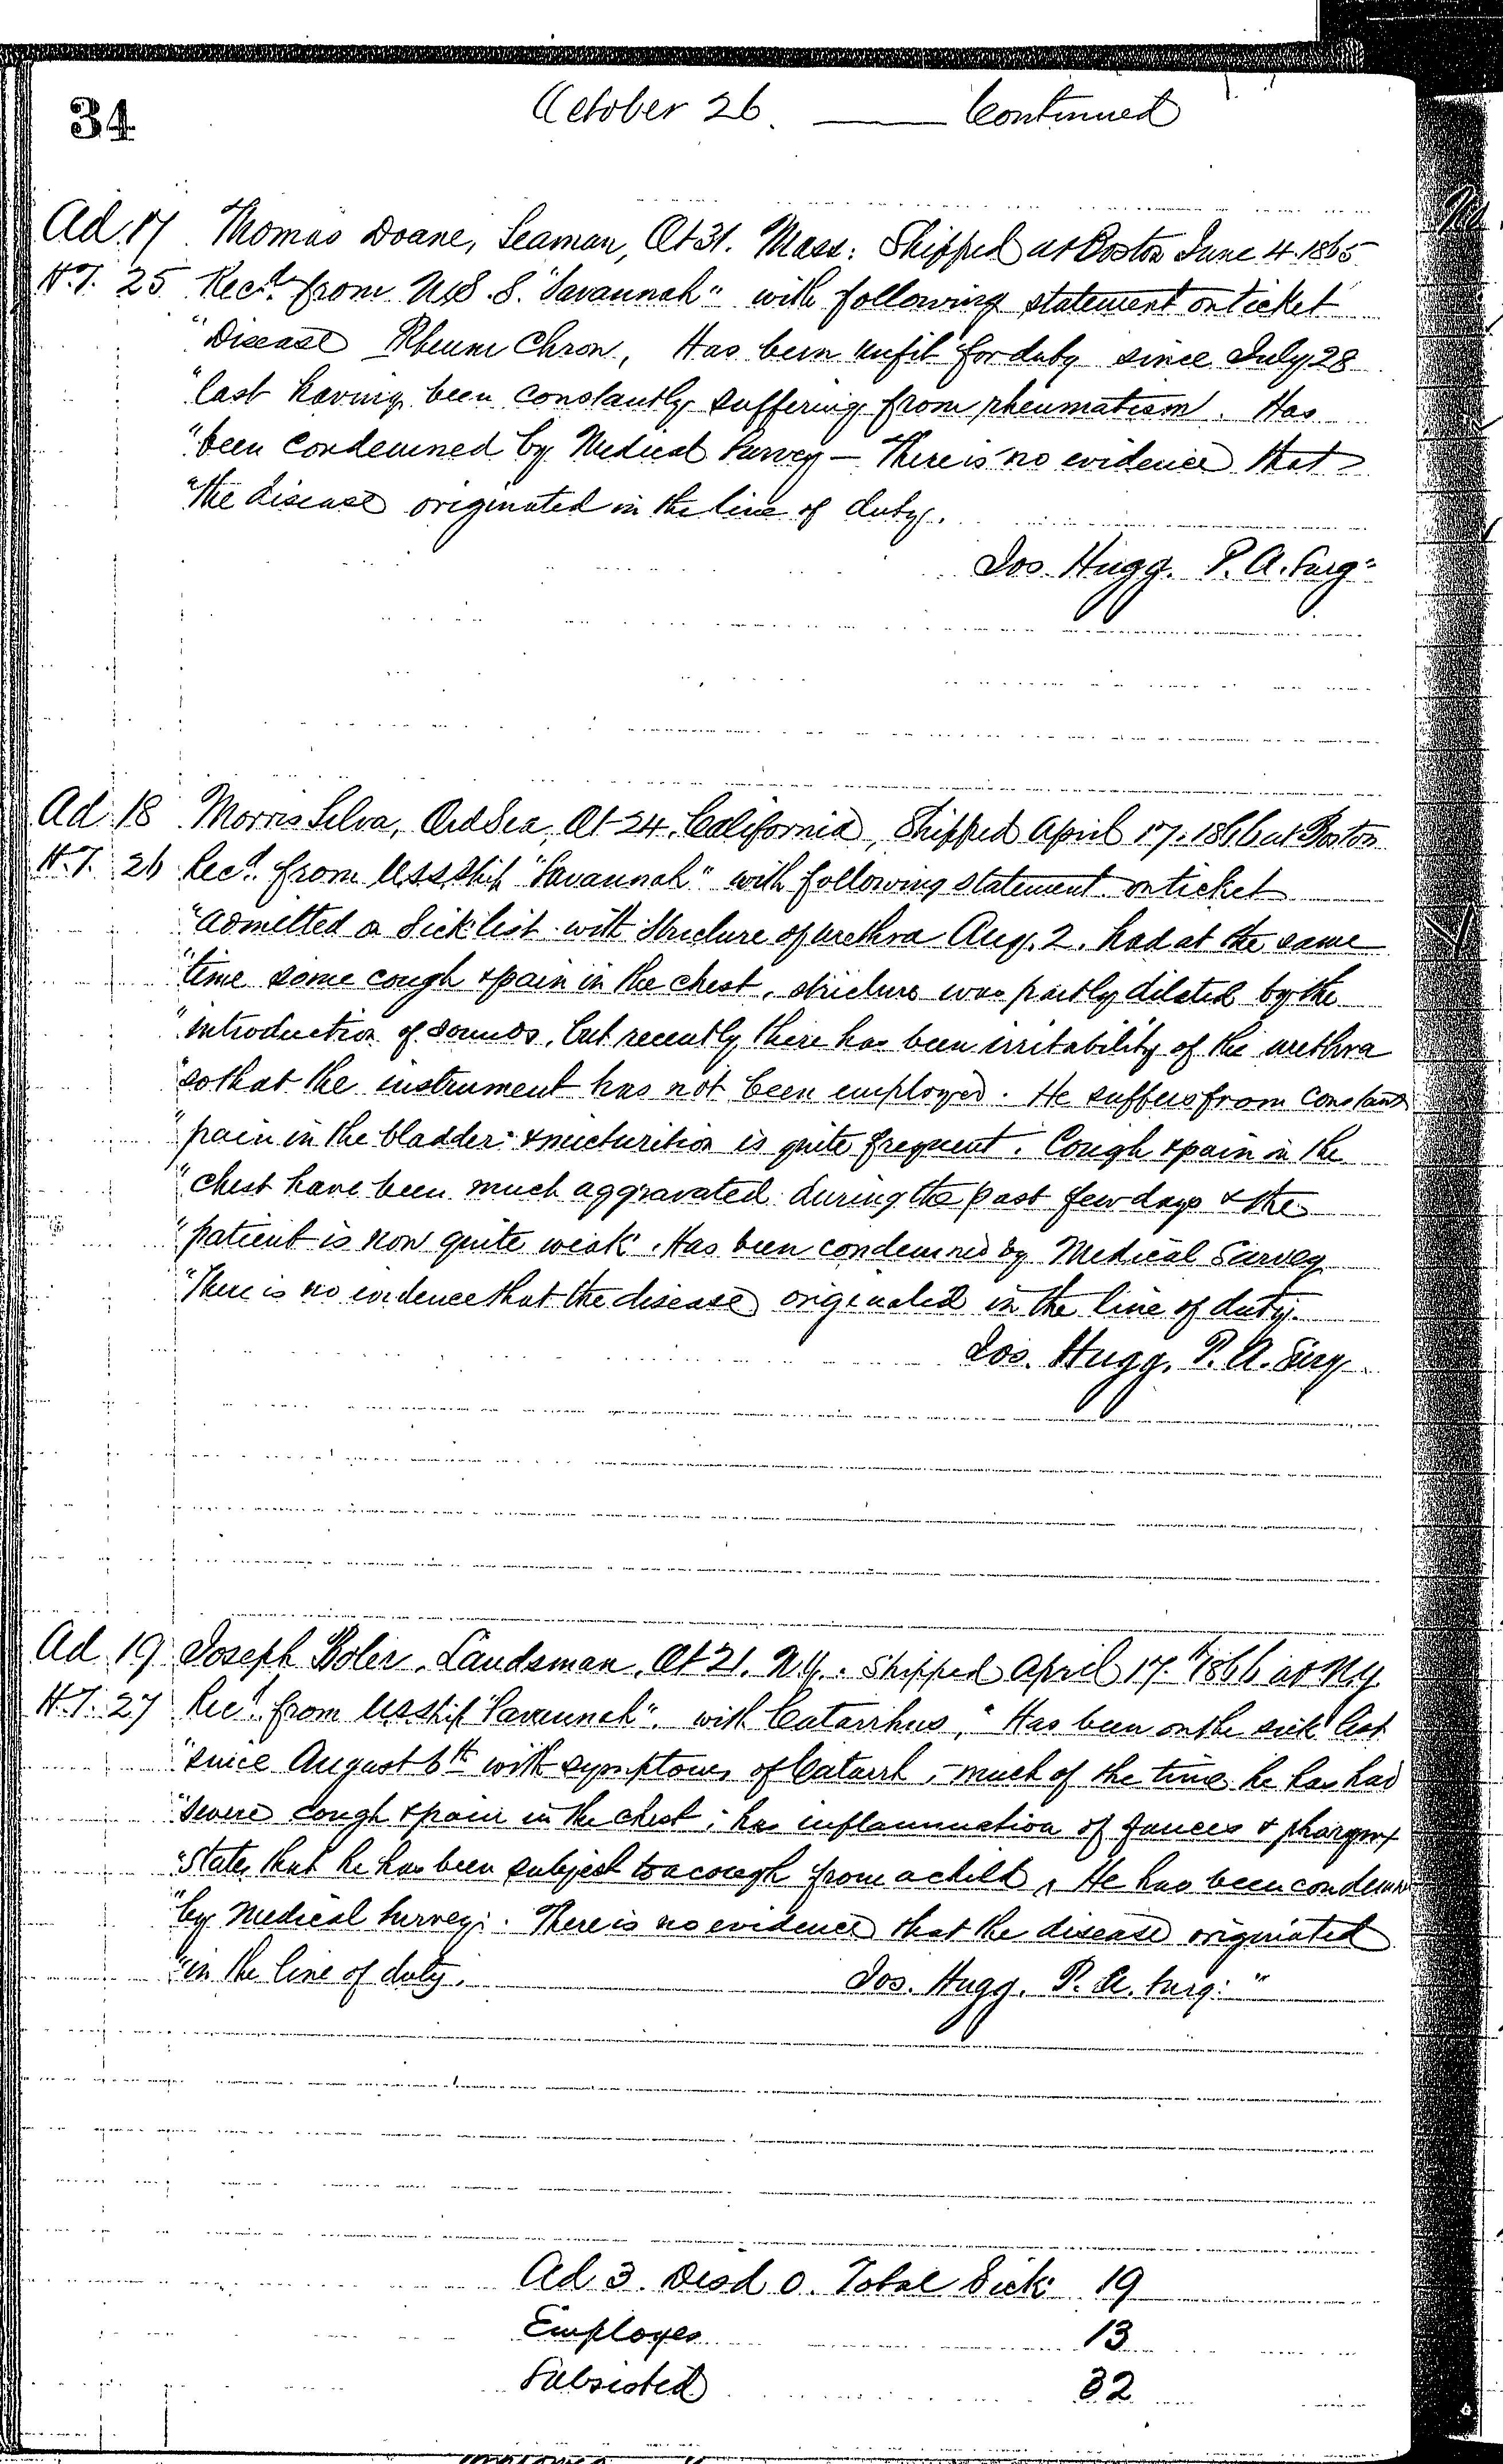 34
October 26. — Continued
Ad. 17 Thomas Doane, Seaman, Æt 31. Mass: Shipped at Boston June 4. 1865
H.T. 25 Recd. from U.S.S. "Savannah" with following statement on ticket
"Disease Rheum Chron, Has been unfit for duty since July 28
"last having been constantly suffering from rheumatism. Has
"been condemned by Medical Survey — There is no evidence that
"the disease originated in the line of duty.
Jos. Hugg. P. A. Surg"
Ad 18 Morris Selva, Ord Sea, Æt 24, California, Shipped April 17. 1866 at Boston
H.T. 26 Recd. from US.S.Ship "Savannah" with following statement on ticket
"Admitted o Sick list with Stricture of urethra Aug. 2. had at the same
"time some cough & pain in the chest, stricture was partly dilated by the
"introduction of sounds, but recently there has been irritability of the urethra
"so that the instrument has not been employed. He suffers from constant
"pain in the bladder & micturition is quite frequent. Cough & pain in the
"chest have been much aggravated during the past few days & the
"patient is now quite weak. Has been condemned by Medical Survey
"There is no evidence that the disease originated in the line of duty.
Jos. Hugg. P. A. Surg
Ad 19 Joseph Boler, Landsman, Æt 21. N.Y. Shipped April 17.th 1866 at N.Y.
H.T. 27 Recd. from US.Ship "Savannah". with Catarrhus, "Has been on the sick list
"since August 6th with symptoms of Catarrh, much of the time he has had
"severe cough & pain in the chest; has inflammation of fauces & pharynx
"States that he has been subject to a cough from a child, He has been condemn
"by Medical Survey. There is no evidence that the disease originated
"in the line of duty. Jos. Hugg. P. A. Surg: "
Ad 3. Disd 0. Total Sick 19
Employes 13
Subsisted 32